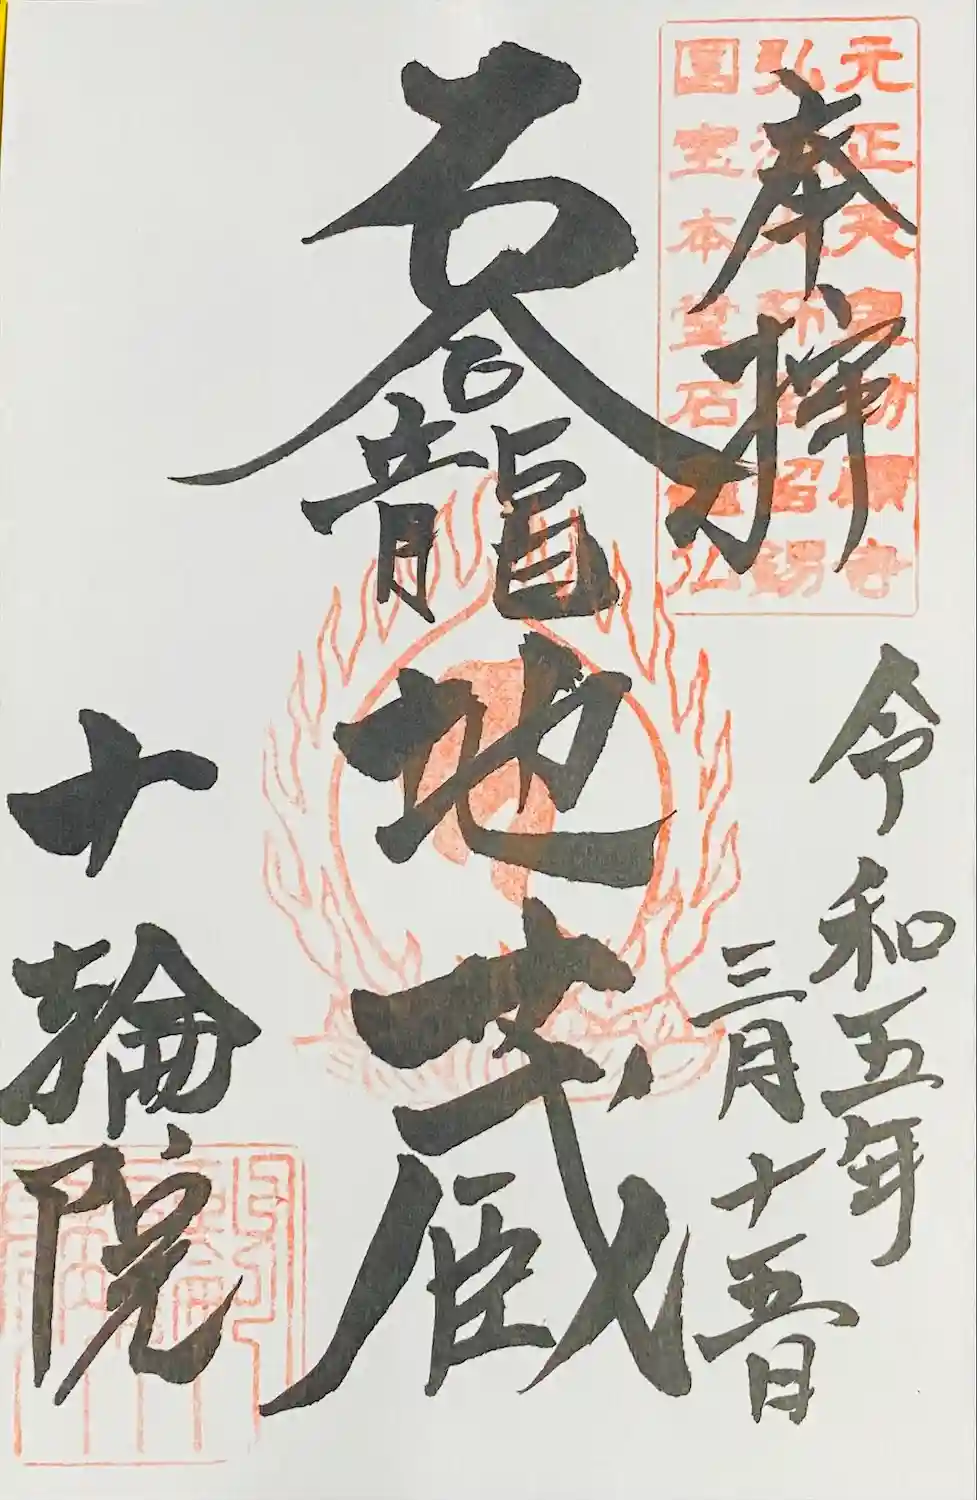 元正天皇勅願寺
弘法大師錫
國宝本堂石龕仏
奉拝
令和五年
三月十五日
石龕地蔵
十輪院